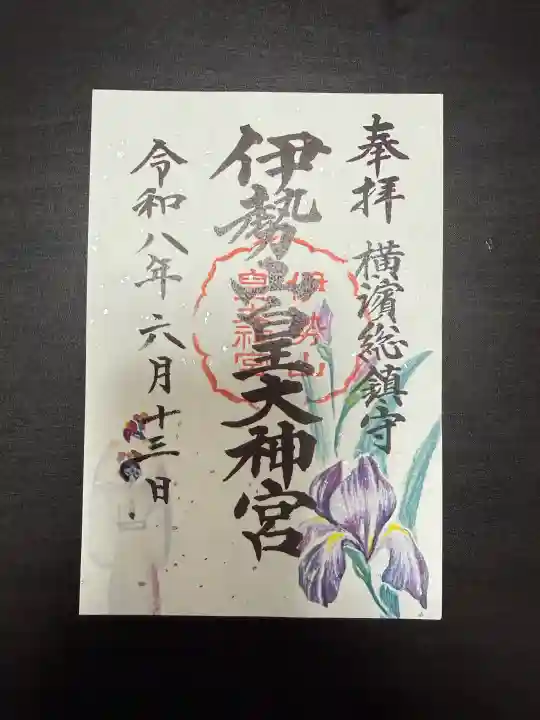 奉拝 横濱総鎮守
伊勢山皇大神宮
伊勢山
皇大神宮
令和八年 六月十三日